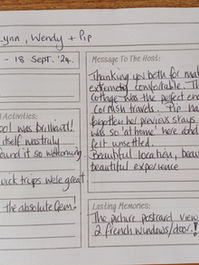 Lynn, Wendy + Pip
- 18 Sept. '24.
Message To The Host:
Thanking you both for mak
extremely comfortable. Th
Cottage was the perfect end
Cornish travels. Pip ha
forgotten his previous stays
was so 'at home' here and
felt unsettled.
Beautiful location, beau
beautiful experience
Activities:
ool was brilliant!
itself was truly
ound it so welcoming
uick trips were great
! the absolute Gem!
Lasting Memories:
The picture postcard view
2 french windows/door!